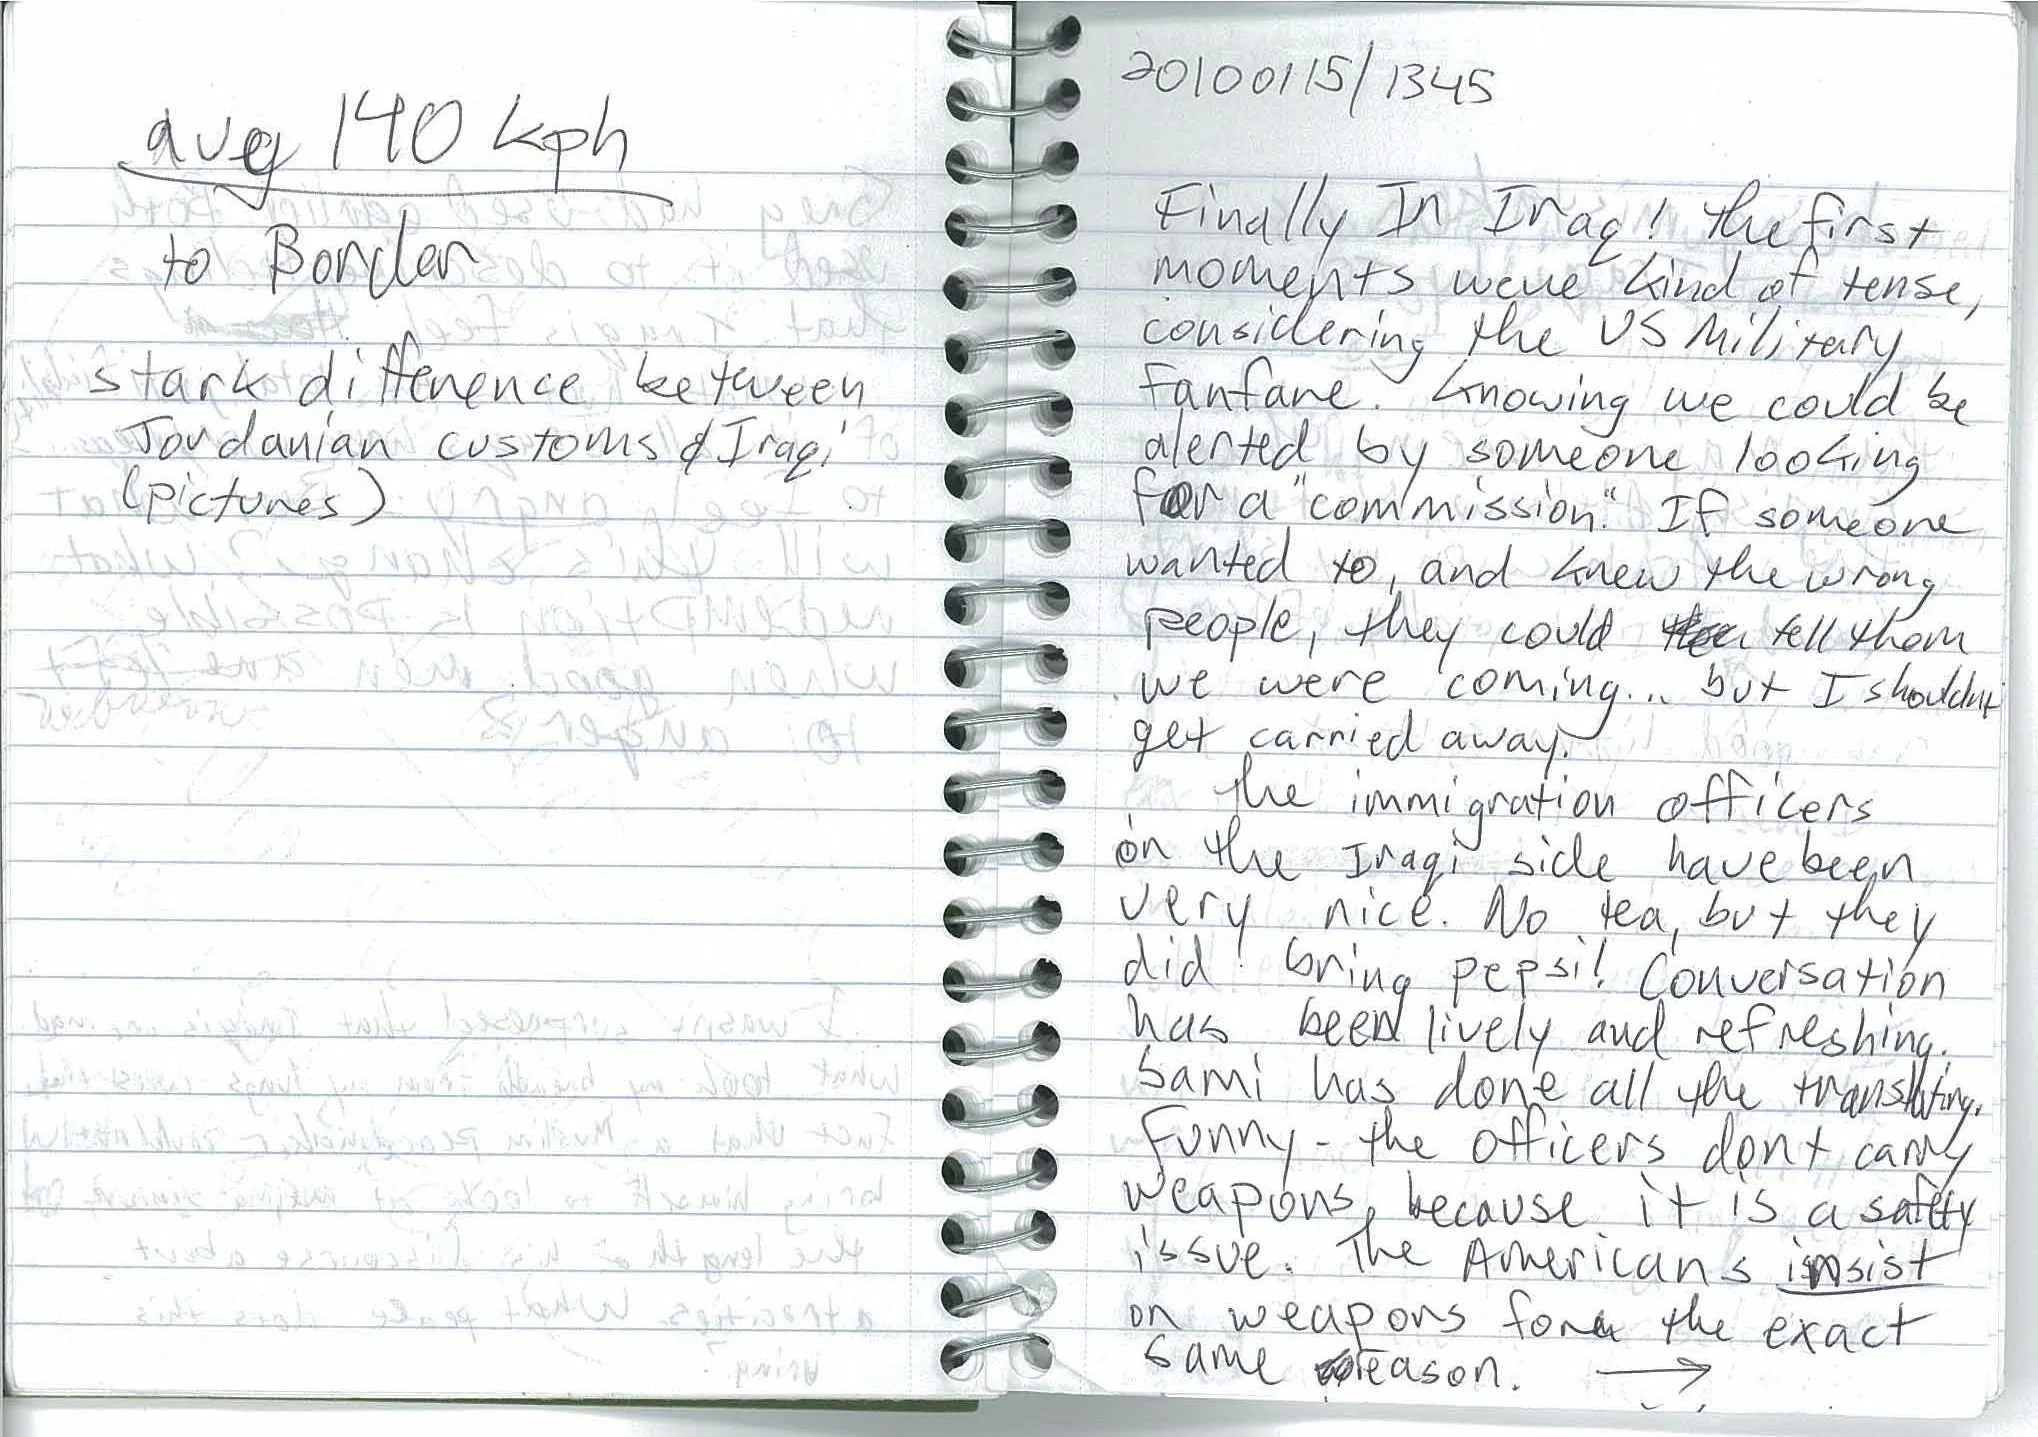 avg 140 kph
to Border
stark difference between
Jordanian customs & Iraqi
(pictures)
20100115/1345
Finally In Iraq! The first
moments were kind of tense,
considering the US Military
fanfare. Knowing we could be
alerted by someone looking
for a "commission." If someone
wanted to, and knew the wrong
people, they could tell them
we were coming... but I shouldnt
get carried away.
The immigration officers
on the Iraqi side have been
very nice. No tea, but they
did bring pepsi! Conversation
has been lively and refreshing.
Sami has done all the translating.
Funny - the officers dont carry
weapons, because it is a safety
issue. The Americans insist
on weapons for the exact
same reason. →